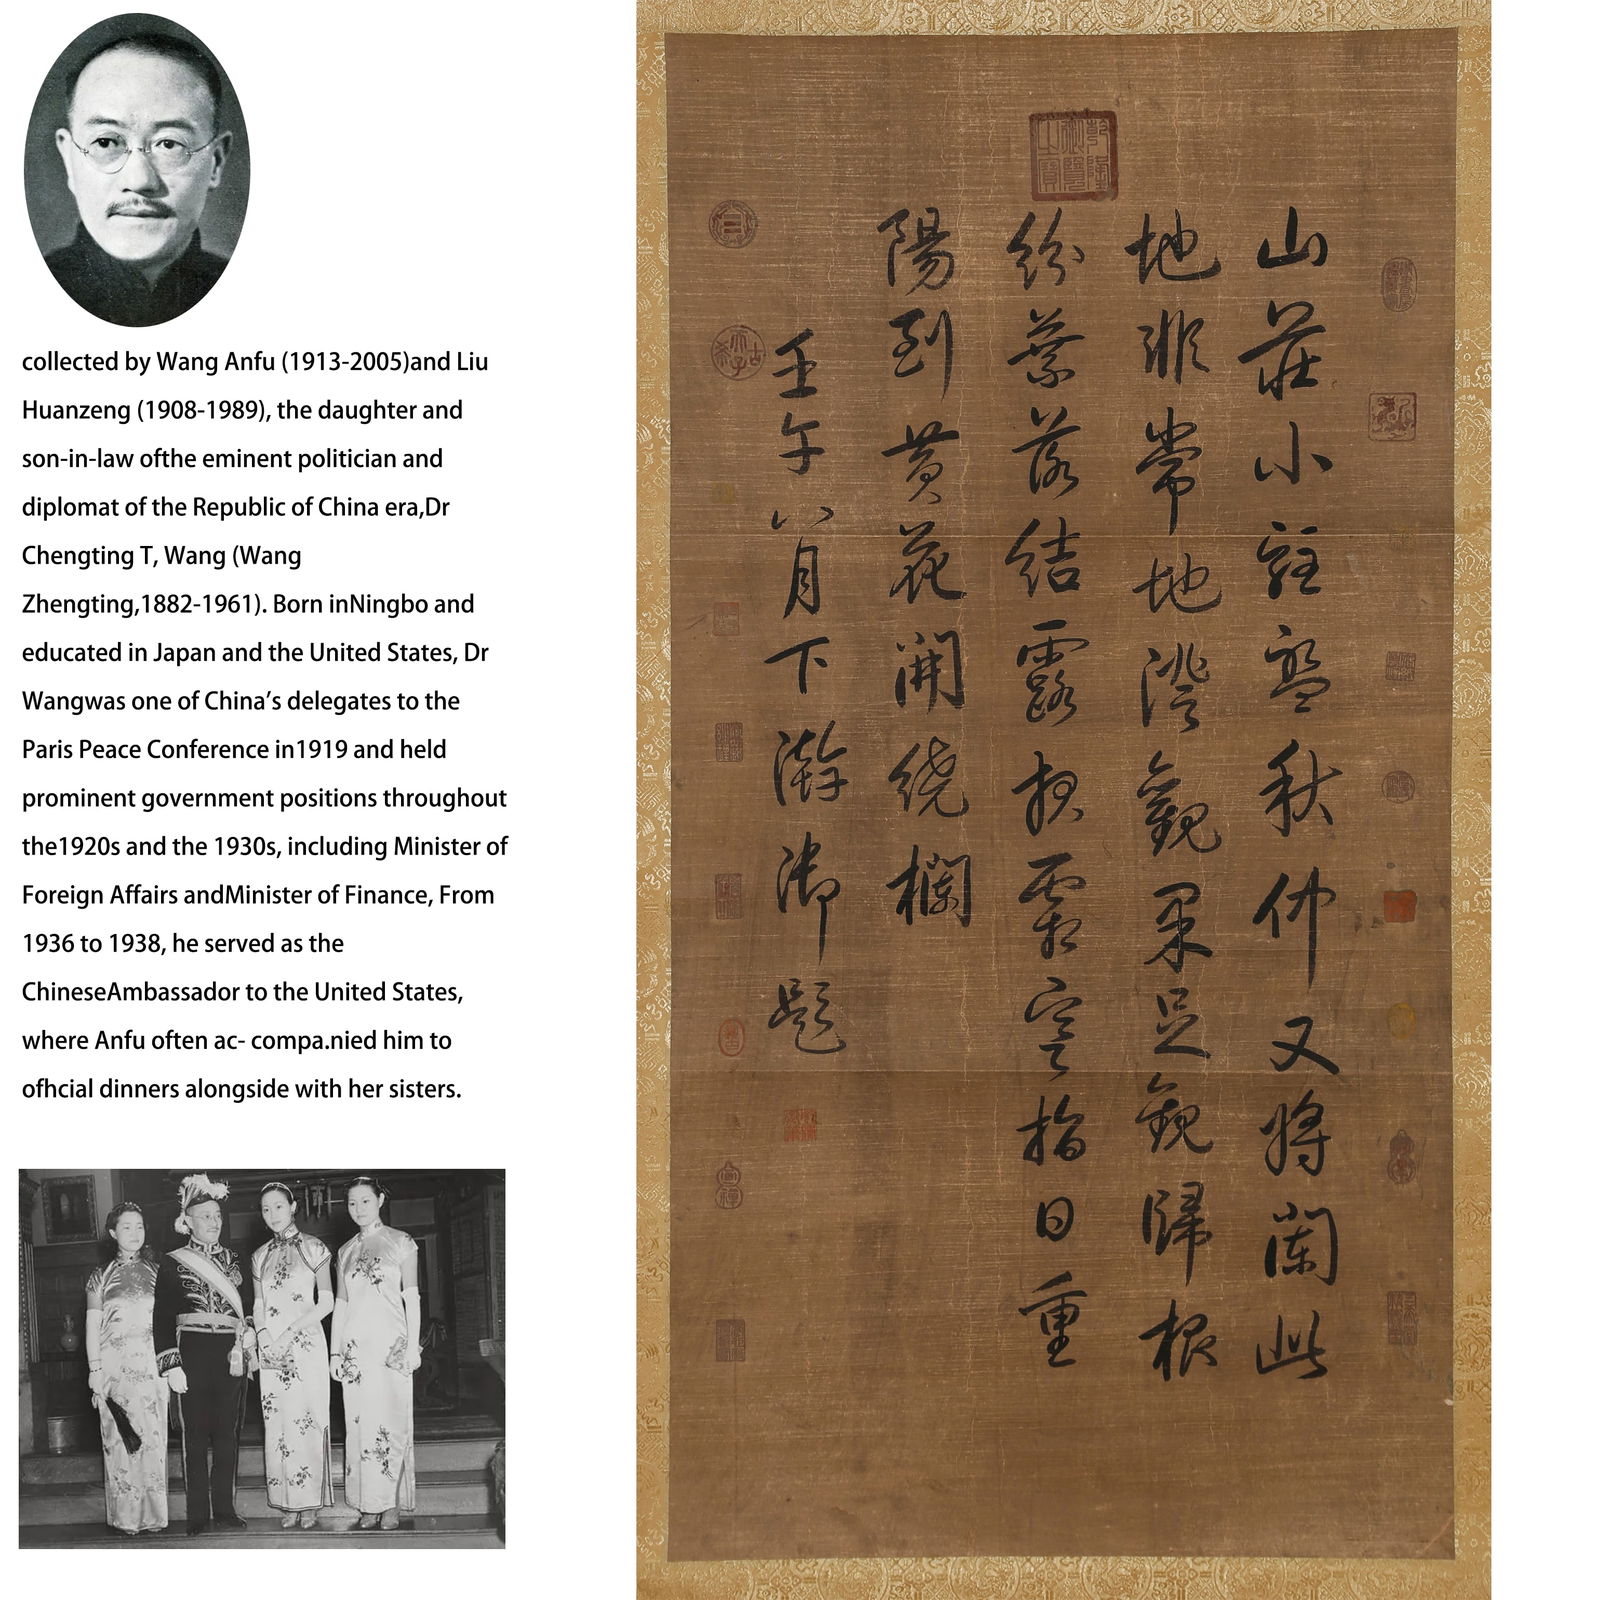 collected by Wang Anfu (1913-2005)and Liu
Huanzeng (1908-1989), the daughter and
son-in-law ofthe eminent politician and
diplomat of the Republic of China era,Dr
Chengting T, Wang (Wang
Zhengting,1882-1961). Born inNingbo and
educated in Japan and the United States, Dr
Wangwas one of China’s delegates to the
Paris Peace Conference in1919 and held
prominent government positions throughout
the1920s and the 1930s, including Minister of
Foreign Affairs andMinister of Finance, From
1936 to 1938, he served as the
ChineseAmbassador to the United States,
where Anfu often ac- compa.nied him to
ofhcial dinners alongside with her sisters.
乾隆御覽之寶
山莊小駐盤秋仲又將闌此
地非常地澄觀果足觀歸根
紛葉落結露報霜寒指日重
陽到黃花開繞欄
壬午八月下澣御題